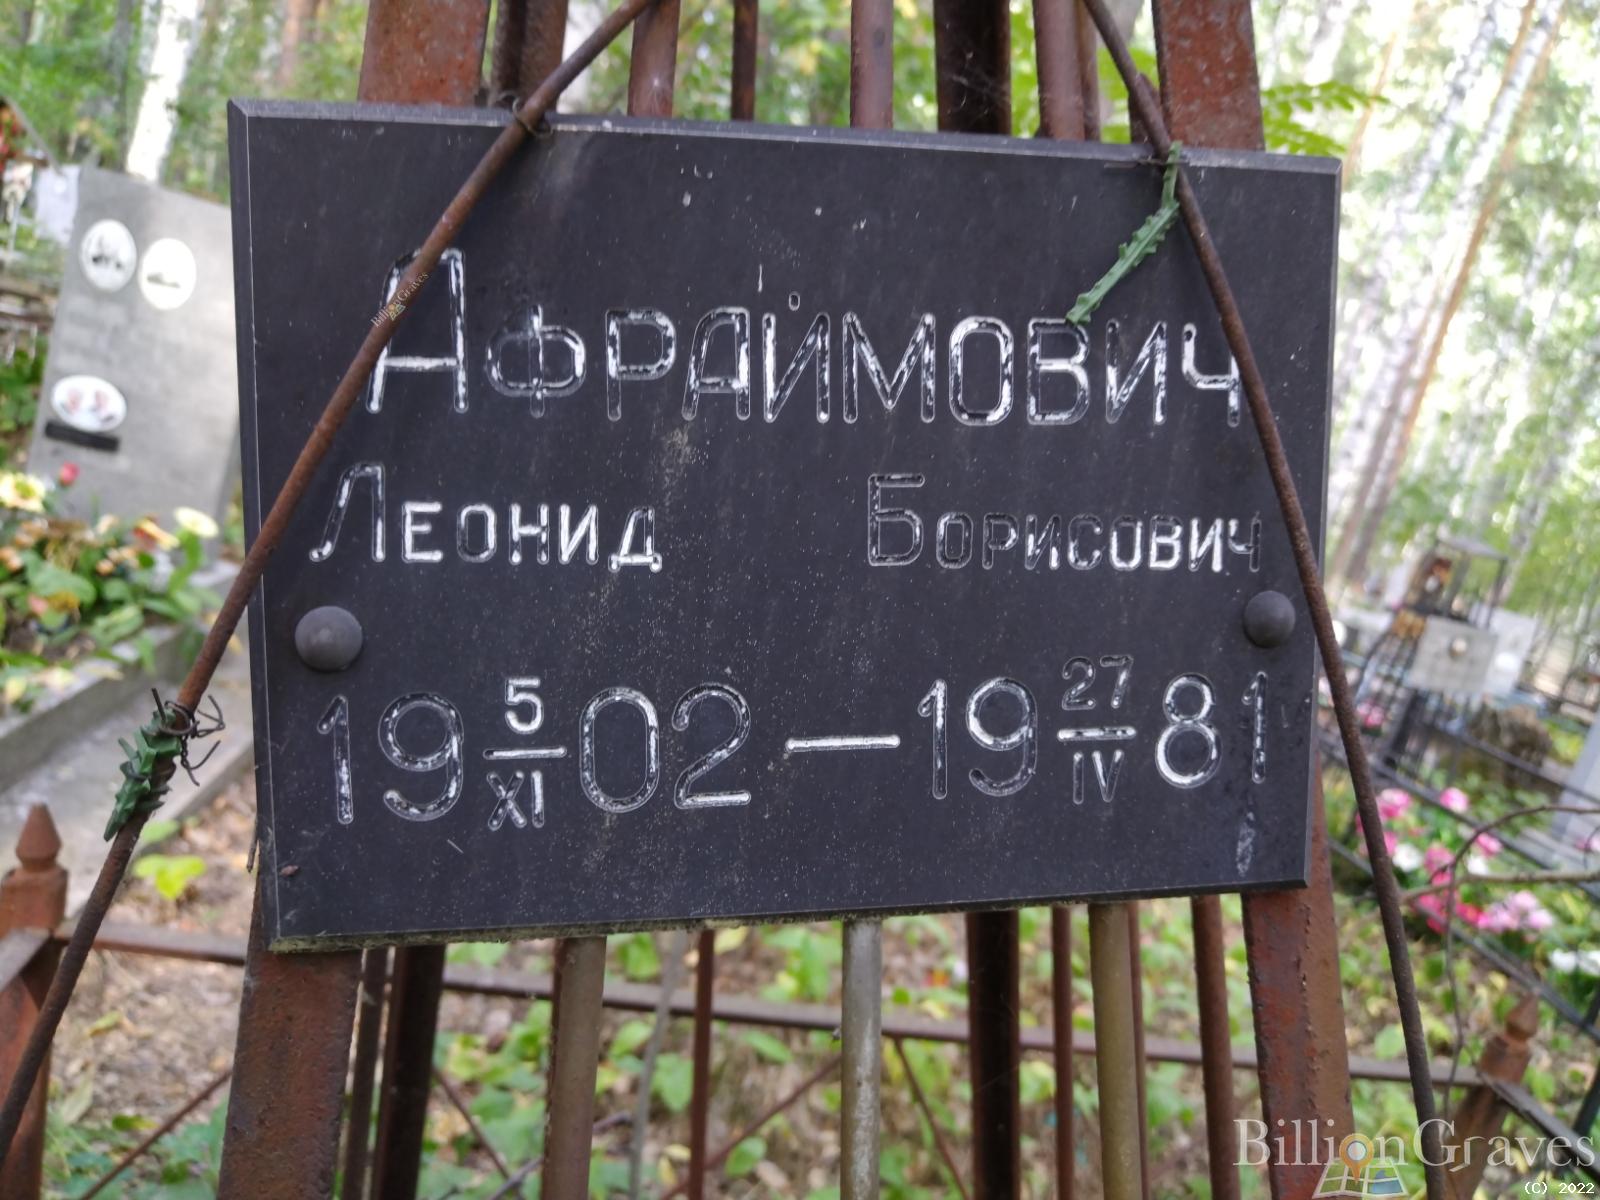 Афраимович
Леонид Борисович
19 5/XI 02 — 19 27/IV 81
BillionGraves
BillionGraves
(C) 2022